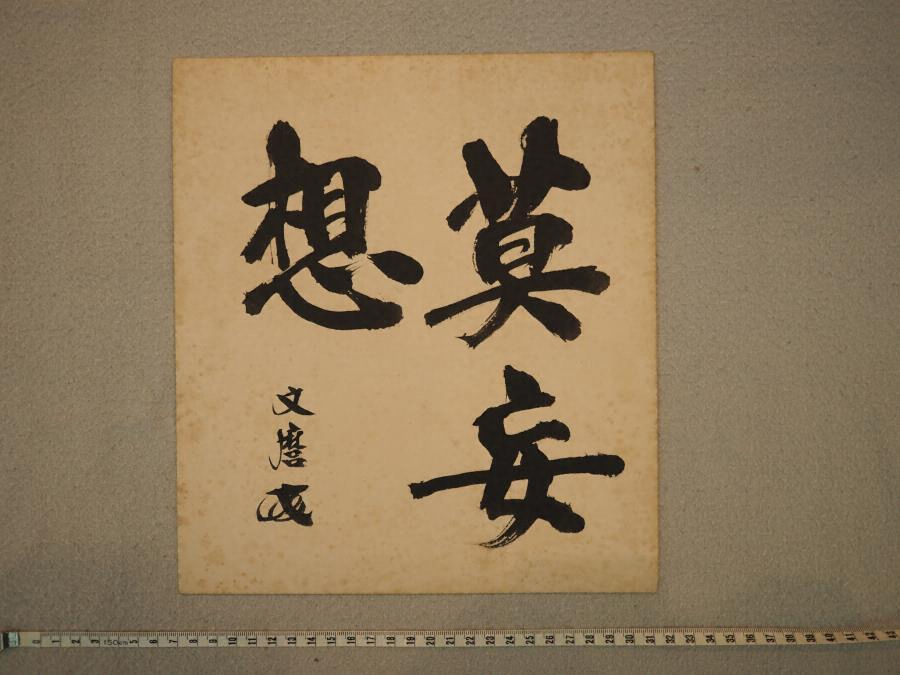 莫妄
想
文麿
0 1 2 3 150cm 5 6 7 8 9 10 11 12 13 14 15 16 17 18 19 20 21 22 23 24 25 26 27 28 29 30 31 32 33 34 35 36 37 38 39 40 41 42 43